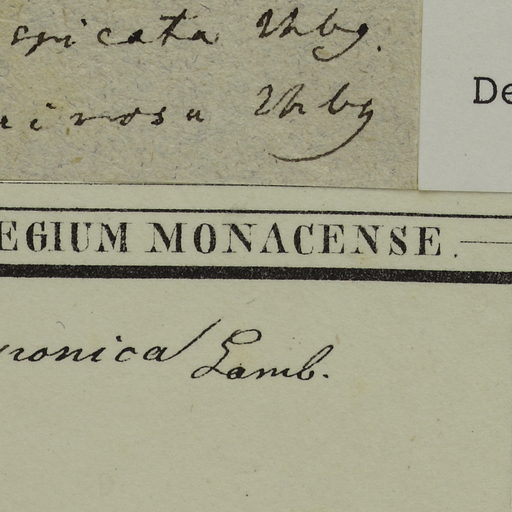 spicata Thbg.
Thbg
De
EGIUM MONACENSE.
ronica Lamb.